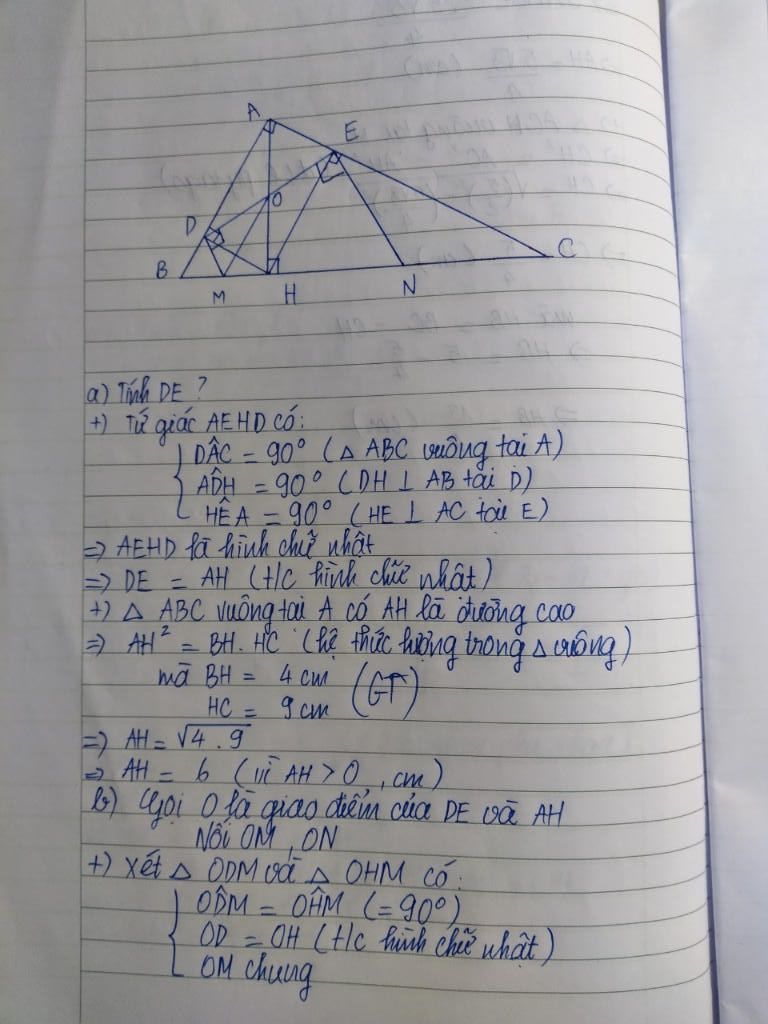 A
E
O
D
B
M
H
N
C
a) Tính DE ?
+) Tứ giác AEHD có:
DÂC = 90° (△ ABC vuông tại A)
AD̂H = 90° (DH ⊥ AB tại D)
HÊA = 90° (HE ⊥ AC tại E)
=> AEHD là hình chữ nhật
=> DE = AH (t/c hình chữ nhật)
+) △ ABC vuông tại A có AH là đường cao
=> AH² = BH. HC (hệ thức lượng trong △ vuông)
mà BH = 4 cm (GT)
HC = 9 cm
=> AH = √4 . 9
=> AH = 6 (vì AH > 0 , cm)
b) Gọi O là giao điểm của DE và AH
Nối OM , ON
+) Xét △ ODM và △ OHM có:
OD̂M = OĤM (= 90°)
OD = OH (t/c hình chữ nhật)
OM chung